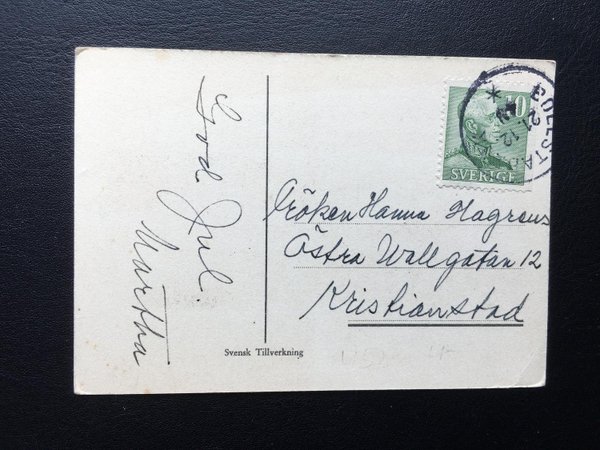 God Jul.
Martha
10
SVERIGE
21.12
Fröken Hanna Hagrens
Östra Wallgatan 12
Kristianstad
Svensk Tillverkning